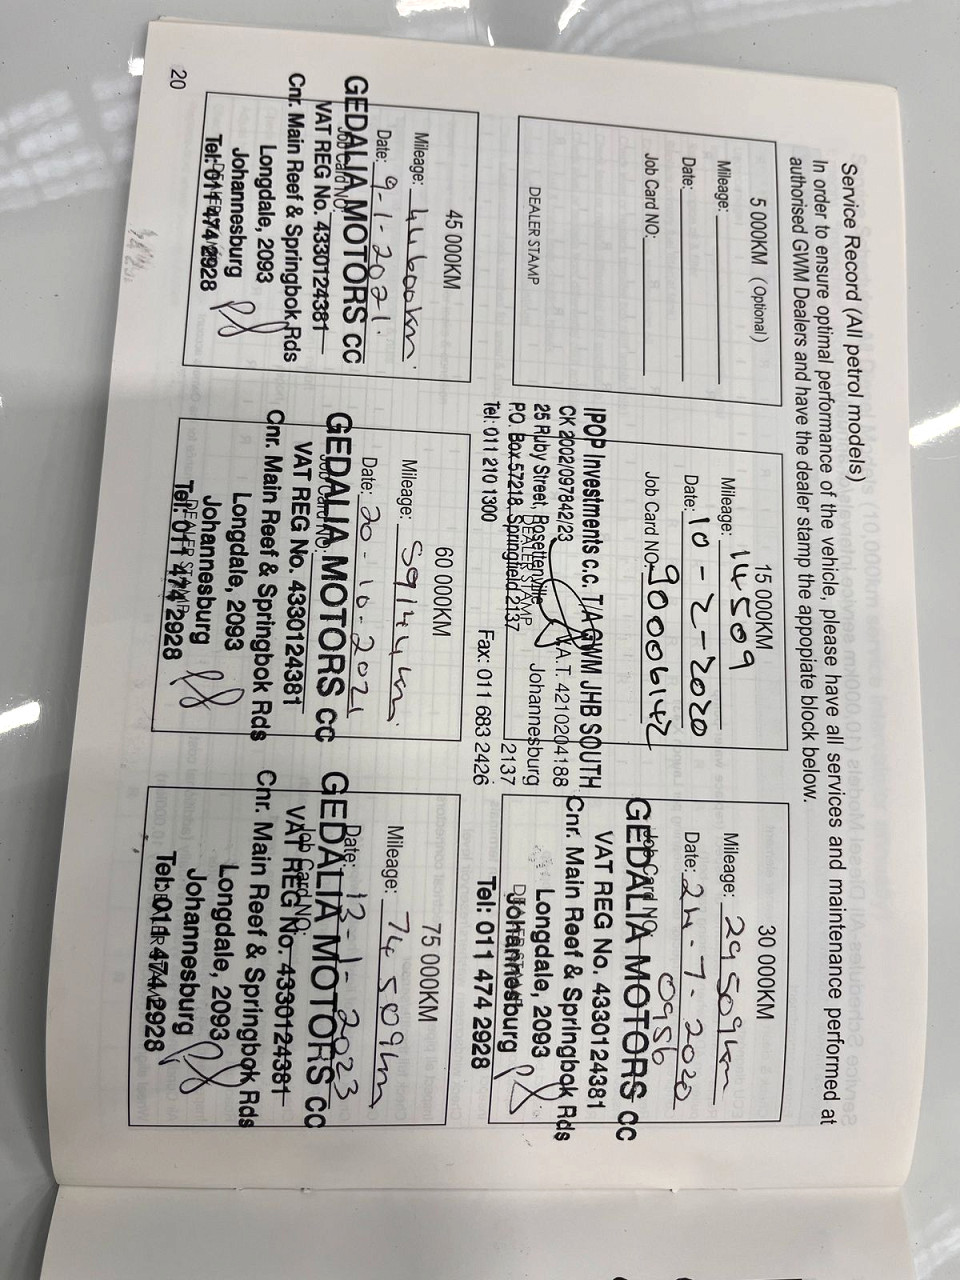 Service Record (All petrol models)
In order to ensure optimal performance of the vehicle, please have all services and maintenance performed at
authorised GWM Dealers and have the dealer stamp the appopiate block below.
5 000KM (Optional)
Mileage:
Date:
Job Card NO:
DEALER STAMP
15 000KM
Mileage: 14509
Date: 10-2-2020
Job Card NO: 90006142
IPOP Investments c.c. T/A GWM JHB SOUTH
CK 2002/097842/23 V.A.T. 4210204188
25 Ruby Street, Rosettenville Johannesburg
DEALER STAMP
P.O. Box 57218, Springfield 2137 2137
Tel: 011 210 1300 Fax: 011 683 2426
30 000KM
Mileage: 29509km
Date: 24-7-2020
Job Card NO: 0956
GEDALIA MOTORS CC
VAT REG No. 4330124381
Cnr. Main Reef & Springbok Rds
Longdale, 2093
Johannesburg
DEALER STAMP
Tel: 011 474 2928
45 000KM
Mileage: 44600km.
Date: 9-1-2021.
Job Card NO:
GEDALIA MOTORS CC
VAT REG No. 4330124381
Cnr. Main Reef & Springbok Rds
Longdale, 2093
Johannesburg
DEALER STAMP
Tel: 011 474 2928
60 000KM
Mileage: 59144km.
Date: 20-10-2021
Job Card NO:
GEDALIA MOTORS CC
VAT REG No. 4330124381
Cnr. Main Reef & Springbok Rds
Longdale, 2093
Johannesburg
DEALER STAMP
Tel: 011 474 2928
75 000KM
Mileage: 74509km
Date: 13-1-2023
Job Card NO:
GEDALIA MOTORS CC
VAT REG No. 4330124381
Cnr. Main Reef & Springbok Rds
Longdale, 2093
Johannesburg
DEALER STAMP
Tel: 011 474 2928
20